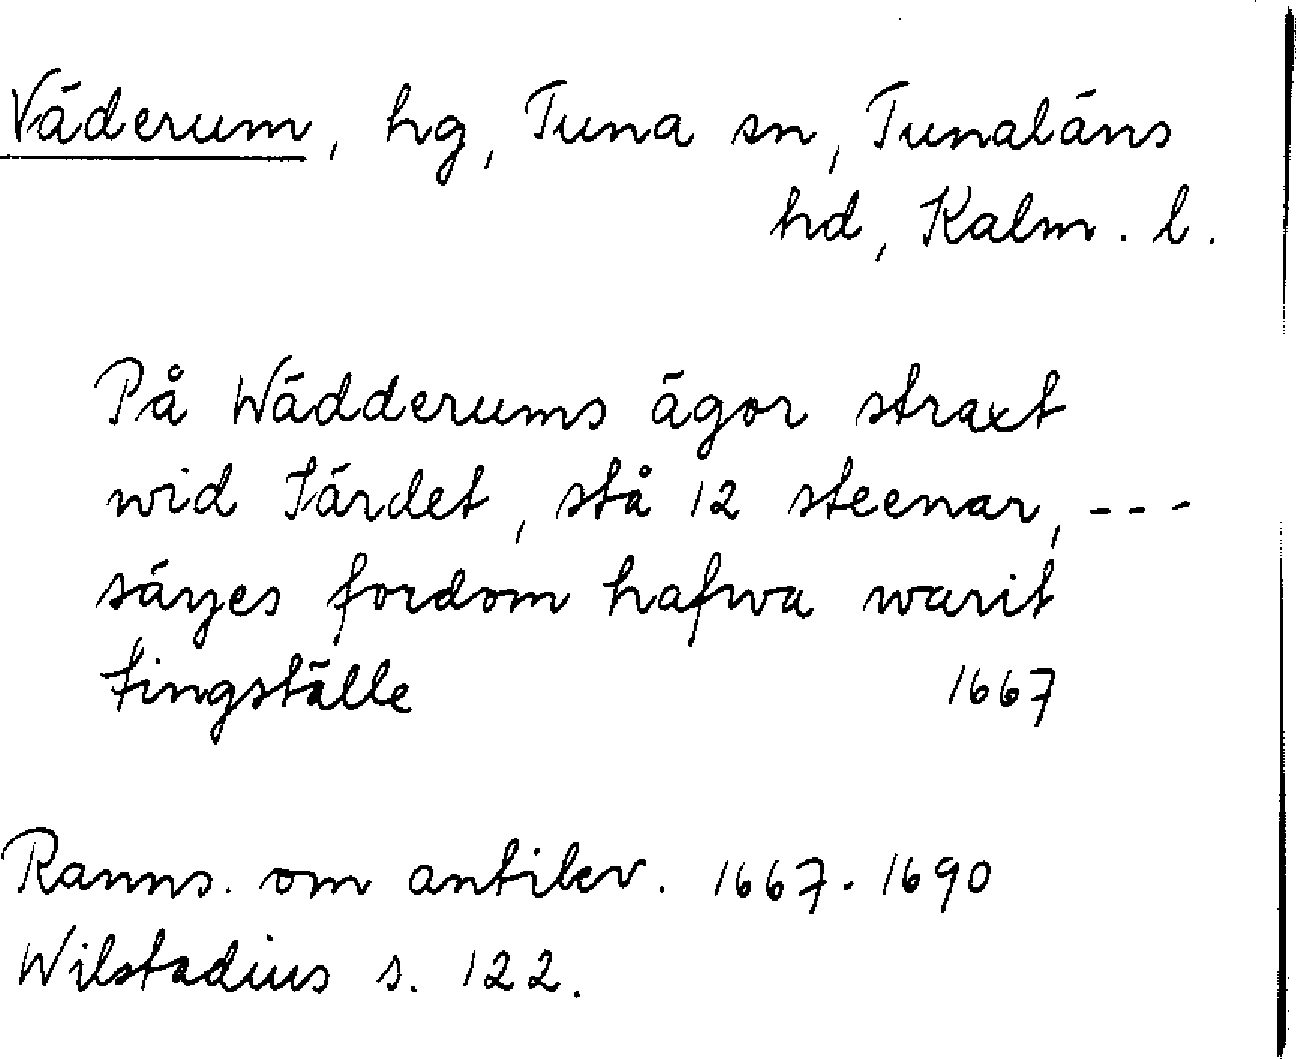 Väderum, hg, Tuna sn, Tunaläns
hd, Kalm. l.
På Wädderums ägor straxt
wid Järdet, stå 12 steenar, ---
säyes fordom hafwa warit
tingställe 1667
Ranns. om antikv. 1667-1690
Wilstadius s. 122.